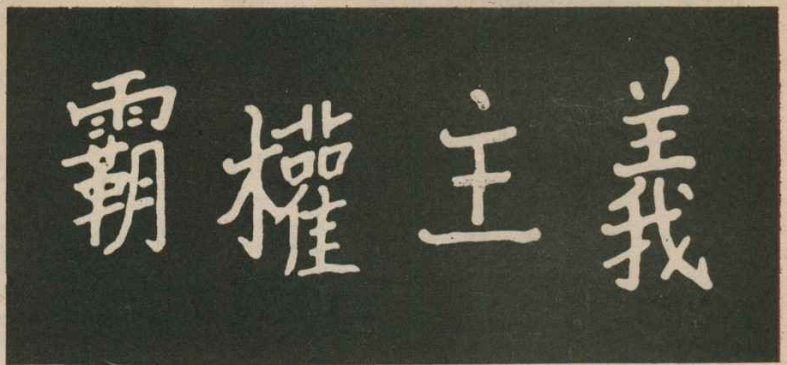 霸權主義